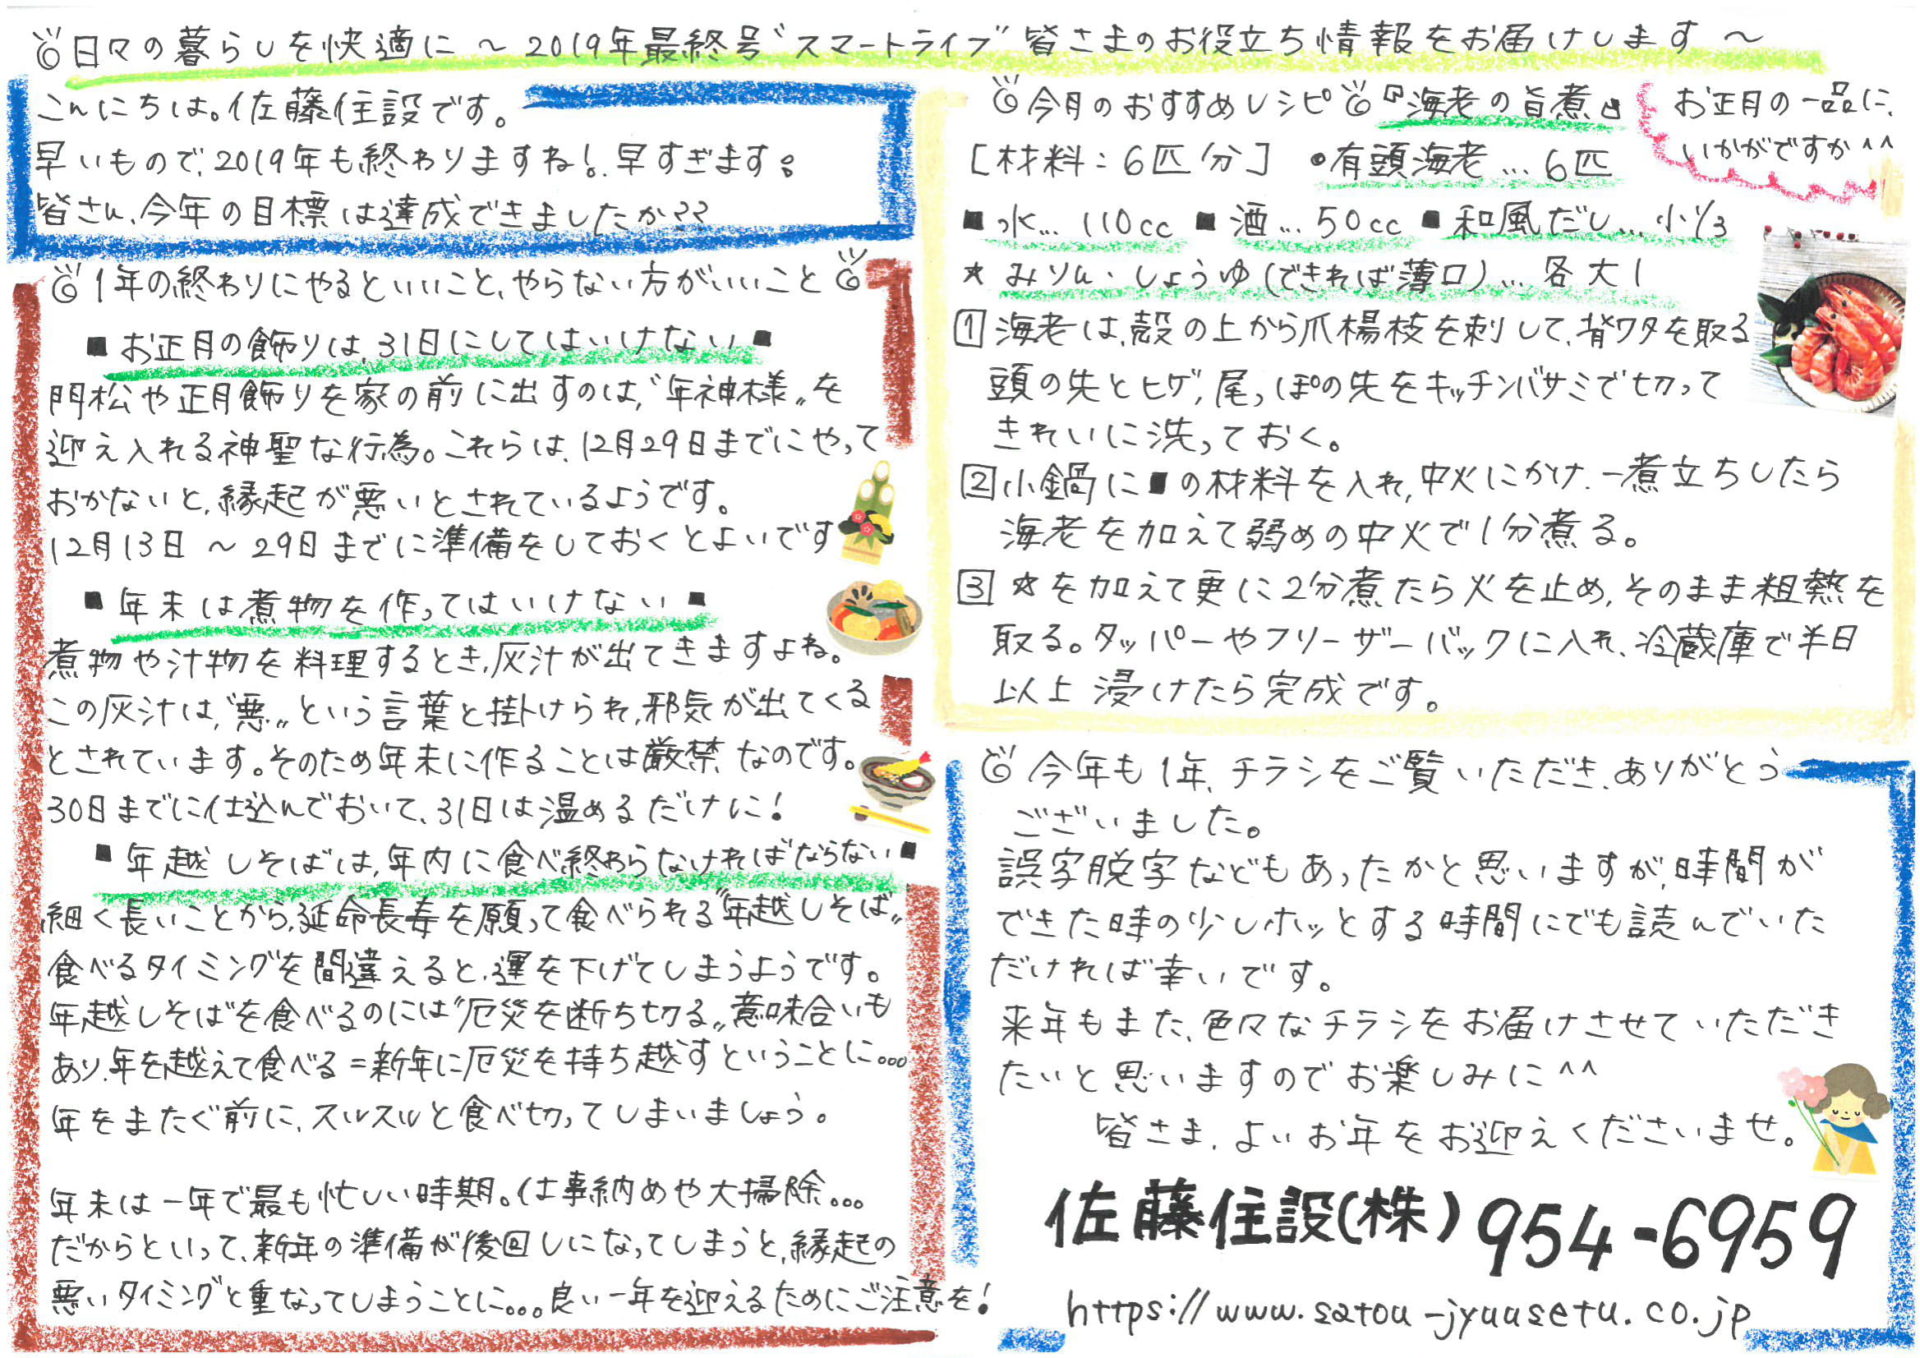 日々の暮らしを快適に ～ 2019年最終号"スマートライフ"皆さまのお役立ち情報をお届けします ～
こんにちは。佐藤住設です。
早いもので、2019年も終わりますね!. 早すぎます。
皆さん、今年の目標は達成できましたか??
1年の終わりにやるといいこと、やらない方がいいこと
■ お正月の飾りは、31日にしてはいけない ■
門松や正月飾りを家の前に出すのは、"年神様〟を
迎え入れる神聖な行為。これらは、12月29日までにやって
おかないと、縁起が悪いとされているようです。
12月13日 ～ 29日までに準備をしておくとよいです
■ 年末は煮物を作ってはいけない ■
煮物や汁物を料理するとき、灰汁が出てきますよね。
この灰汁は、"悪〟という言葉と掛けられ、邪気が出てくる
とされています。そのため年末に作ることは厳禁なのです。
30日までに仕込んでおいて、31日は温めるだけに!
■ 年越しそばは、年内に食べ終わらなければならない ■
細く長いことから、延命長寿を願って食べられる"年越しそば〟
食べるタイミングを間違えると、運を下げてしまうようです。
年越しそばを食べるのには"厄災を断ち切る〟意味合いも
あり、年を越えて食べる=新年に厄災を持ち越すということに...
年をまたぐ前に、スルスルと食べ切ってしまいましょう。
年末は一年で最も忙しい時期。仕事納めや大掃除...
だからといって、新年の準備が後回しになってしまうと、縁起の
悪いタイミングと重なってしまうことに... 良い一年を迎えるためにご注意を!
今月のおすすめレシピ 『海老の旨煮』
お正月の一品に、
いかがですか^^
[材料:6匹分] ●有頭海老...6匹
■水...110cc ■酒...50cc ■和風だし...小1/3
★みりん・しょうゆ(できれば薄口)...各大1
1 海老は、殻の上から爪楊枝を刺して、背ワタを取る
頭の先とヒゲ、尾っぽの先をキッチンバサミで切って
きれいに洗っておく。
2 小鍋に■の材料を入れ、中火にかけ、一煮立ちしたら
海老を加えて弱めの中火で1分煮る。
3 ★を加えて更に2分煮たら火を止め、そのまま粗熱を
取る。タッパーやフリーザーバックに入れ、冷蔵庫で半日
以上 浸けたら完成です。
今年も1年、チラシをご覧いただき、ありがとう
ございました。
誤字脱字などもあったかと思いますが、時間が
できた時の少しホッとする時間にでも読んでいた
だければ幸いです。
来年もまた、色々なチラシをお届けさせていただき
たいと思いますのでお楽しみに^^
皆さま、よいお年をお迎えくださいませ。
佐藤住設(株) 954-6959
https://www.satou-jyuusetu.co.jp